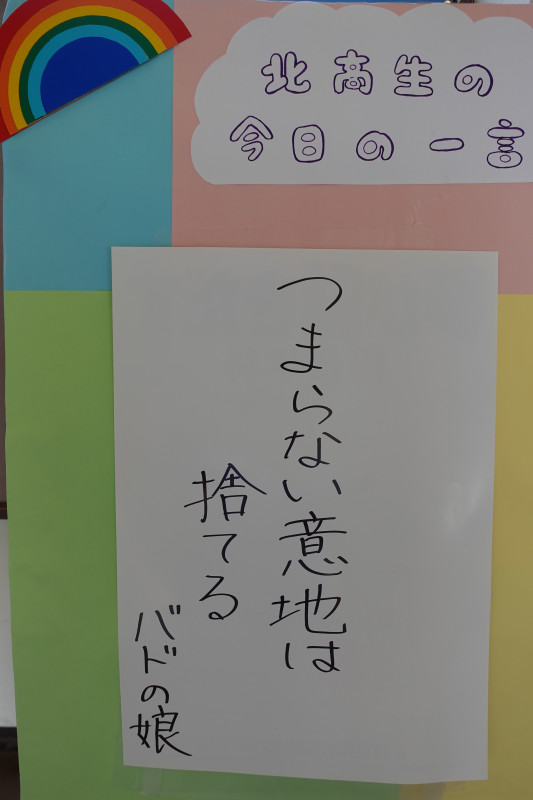 北高生の
今日の一言
つまらない意地は
捨てる
バドの娘